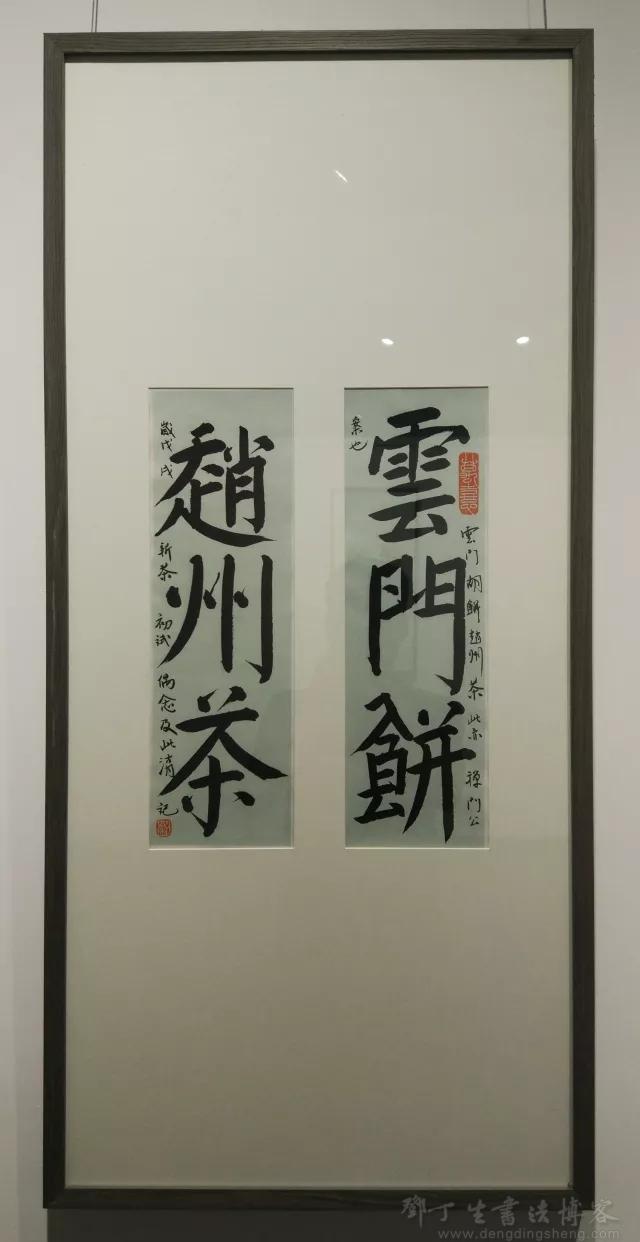 雲門餅
雲门胡餅趙州茶此亦禅门公
案也
趙州茶
歲戊戌新茶初试偶念及此清记
鄧丁生書法博客
www.dengdingsheng.com